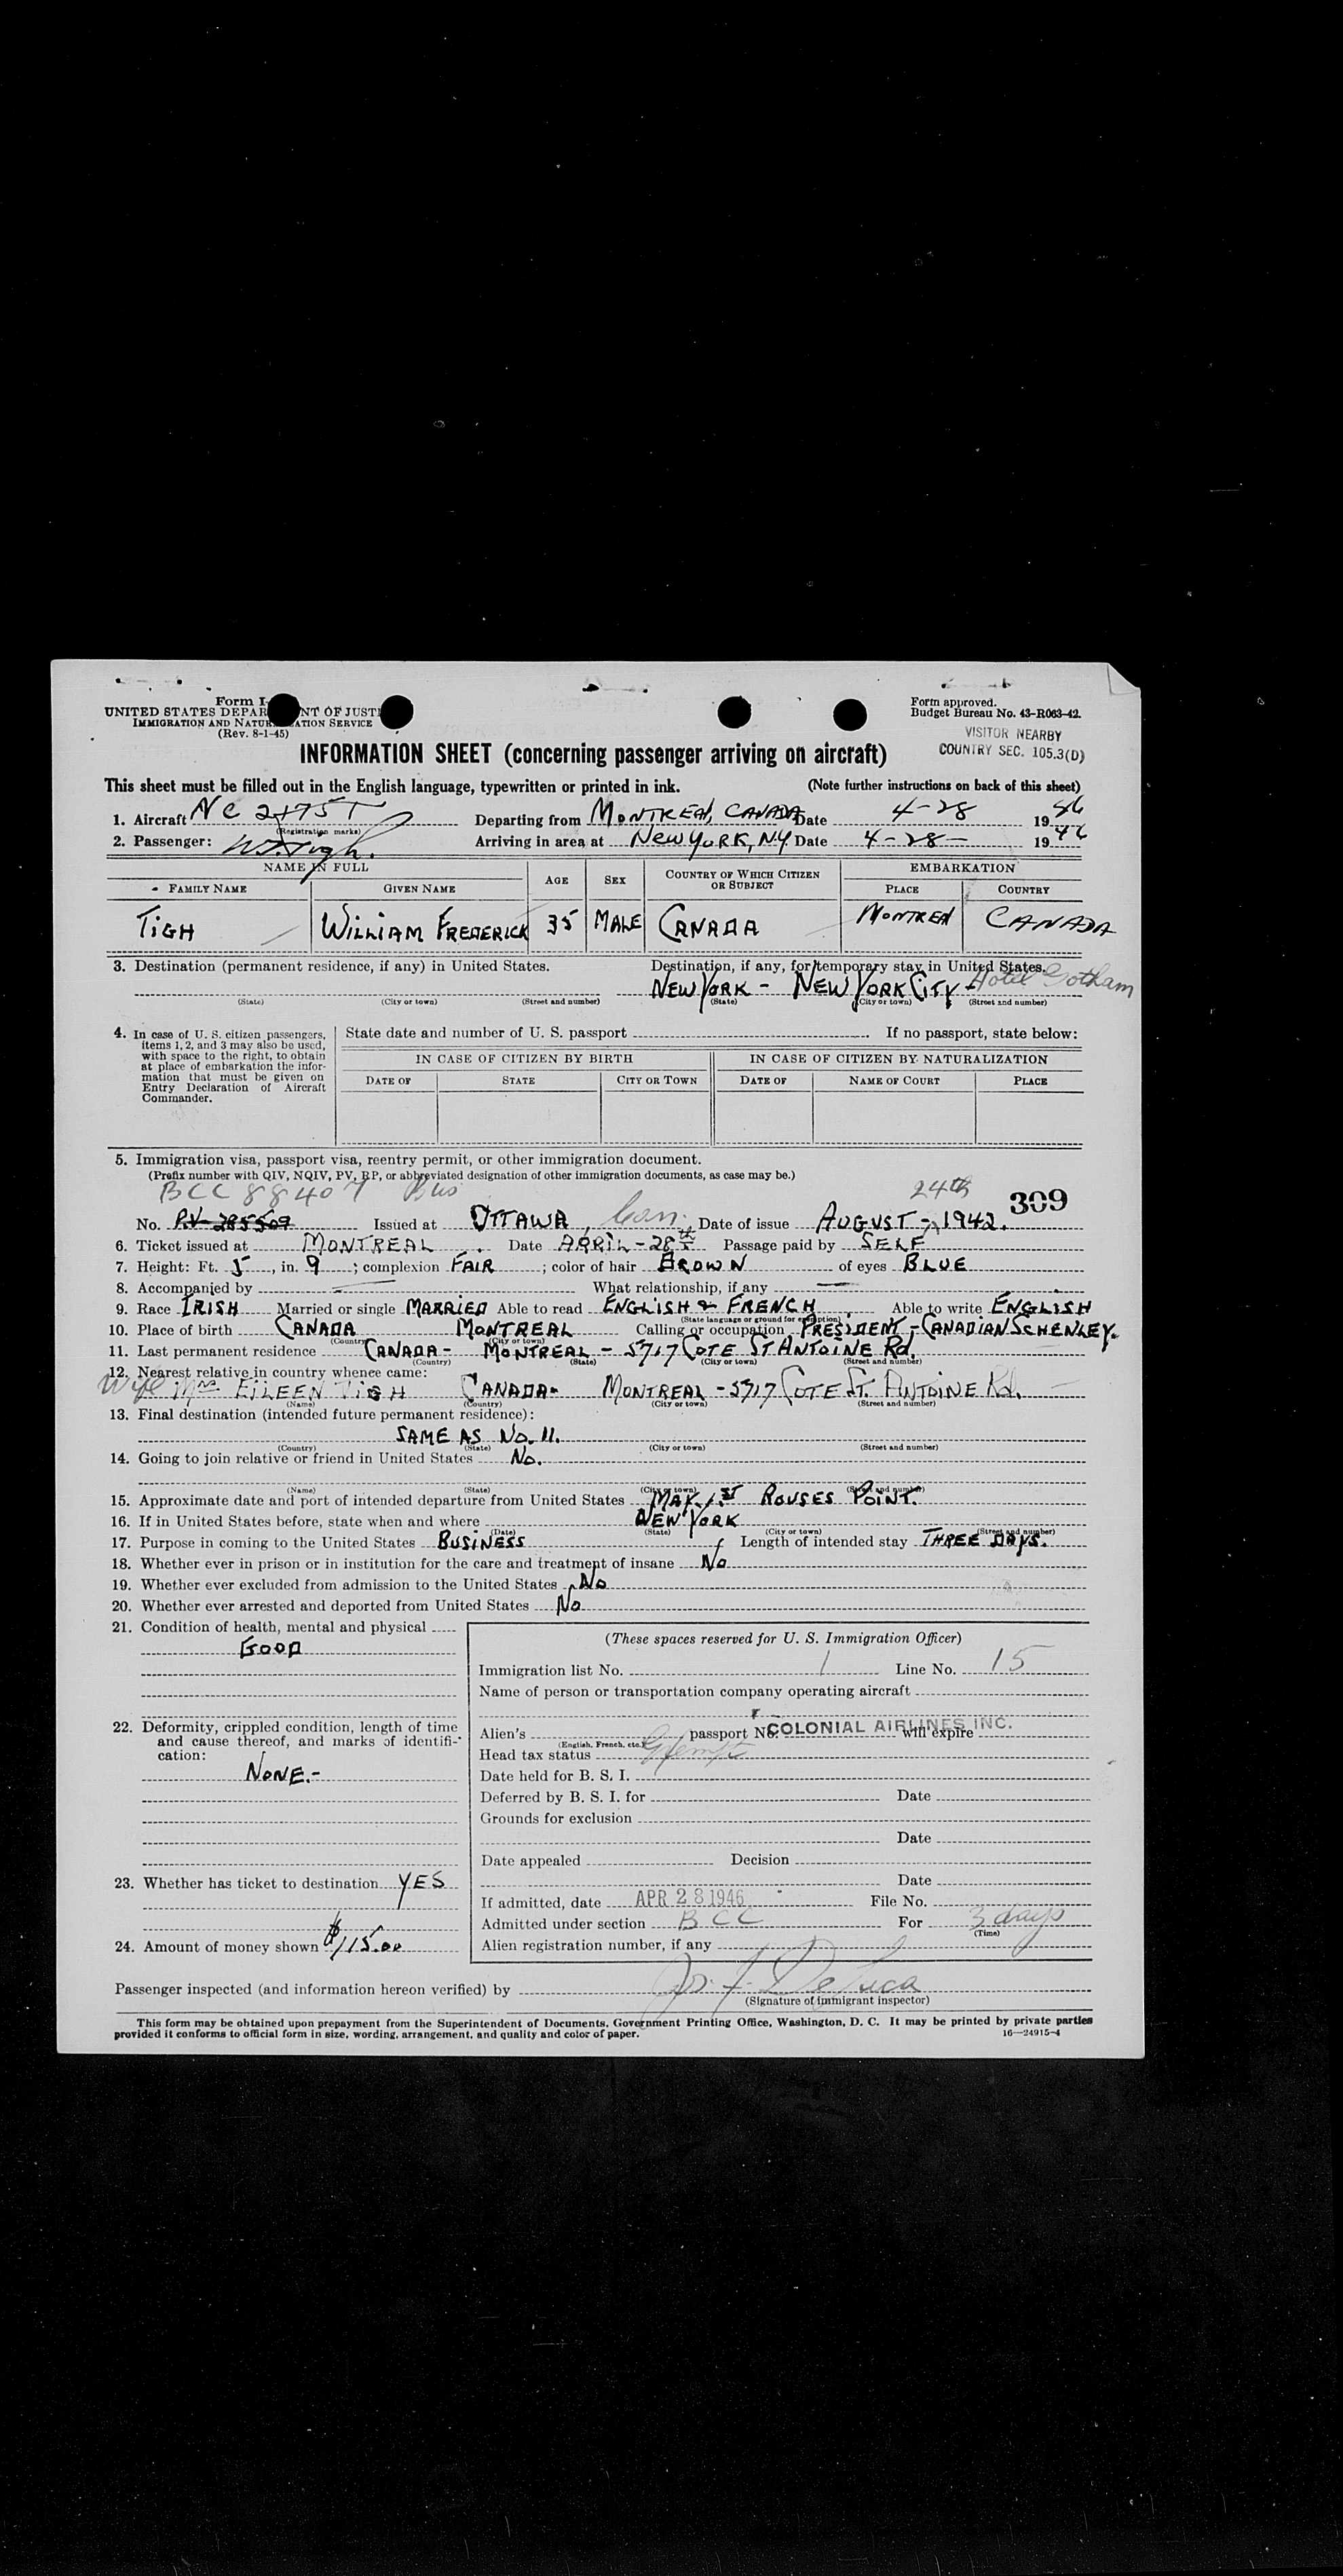 Form I-
UNITED STATES DEPAR NT OF JUSTI
IMMIGRATION AND NATUR ATION SERVICE
(Rev. 8-1-45)
Form approved.
Budget Bureau No. 43-R063-42.
VISITOR NEARBY
COUNTRY SEC. 105.3(D)
INFORMATION SHEET (concerning passenger arriving on aircraft)
This sheet must be filled out in the English language, typewritten or printed in ink. (Note further instructions on back of this sheet)
1. Aircraft NC Departing from MONTREAL, CANADA Date 4-28 1946
(Registration marks)
2. Passenger: W.F. Tigh. Arriving in area at NEW YORK, N.Y. Date 4-28- 1946
NAME IN FULL AGE SEX COUNTRY OF WHICH CITIZEN OR SUBJECT EMBARKATION
FAMILY NAME GIVEN NAME PLACE COUNTRY
TIGH WILLIAM FREDERICK 35 MALE CANADA MONTREAL CANADA
3. Destination (permanent residence, if any) in United States. Destination, if any, for temporary stay in United States.
NEW YORK - NEW YORK CITY - Hotel Gotham
(State) (City or town) (Street and number) (State) (City or town) (Street and number)
4. In case of U. S. citizen passengers, items 1, 2, and 3 may also be used, with space to the right, to obtain at place of embarkation the information that must be given on Entry Declaration of Aircraft Commander.
State date and number of U. S. passport If no passport, state below:
IN CASE OF CITIZEN BY BIRTH IN CASE OF CITIZEN BY NATURALIZATION
DATE OF STATE CITY OR TOWN DATE OF NAME OF COURT PLACE
5. Immigration visa, passport visa, reentry permit, or other immigration document.
(Prefix number with QIV, NQIV, PV, RP, or abbreviated designation of other immigration documents, as case may be.)
BCC 88407 Bus 24th 309
No. PV-285509 Issued at OTTAWA, Can. Date of issue AUGUST - 1942.
6. Ticket issued at MONTREAL Date APRIL-28th Passage paid by SELF
7. Height: Ft. 5, in. 9; complexion FAIR; color of hair BROWN of eyes BLUE
8. Accompanied by — What relationship, if any —
9. Race IRISH Married or single MARRIED Able to read ENGLISH & FRENCH Able to write ENGLISH
(State language or ground for exemption)
10. Place of birth CANADA MONTREAL Calling or occupation PRESIDENT - CANADIAN SCHENLEY.
(Country) (City or town)
11. Last permanent residence CANADA - MONTREAL - 5717 COTE ST ANTOINE Rd.
(Country) (State) (City or town) (Street and number)
12. Nearest relative in country whence came:
Wife Mrs EILEEN TIGH CANADA- MONTREAL - 5717 COTE ST. ANTOINE Rd.
(Name) (Country) (City or town) (Street and number)
13. Final destination (intended future permanent residence):
SAME AS No. 11.
(Country) (State) (City or town) (Street and number)
14. Going to join relative or friend in United States No.
(Name) (State) (City or town) (Street and number)
15. Approximate date and port of intended departure from United States MAY 1ST ROUSES POINT.
16. If in United States before, state when and where NEW YORK
(Date) (State) (City or town) (Street and number)
17. Purpose in coming to the United States BUSINESS Length of intended stay THREE DAYS.
18. Whether ever in prison or in institution for the care and treatment of insane No
19. Whether ever excluded from admission to the United States No
20. Whether ever arrested and deported from United States No
21. Condition of health, mental and physical
GOOD
22. Deformity, crippled condition, length of time and cause thereof, and marks of identification:
NONE.-
23. Whether has ticket to destination YES
24. Amount of money shown $115.00
(These spaces reserved for U. S. Immigration Officer)
Immigration list No. 1 Line No. 15
Name of person or transportation company operating aircraft
COLONIAL AIRLINES INC.
Alien's passport No. will expire
(English, French, etc.)
Head tax status Exempt
Date held for B. S. I.
Deferred by B. S. I. for Date
Grounds for exclusion
Date
Date appealed Decision
Date
If admitted, date APR 28 1946 File No.
Admitted under section BCC For 3 days
(Time)
Alien registration number, if any
Passenger inspected (and information hereon verified) by Jos. F. DeLuca
(Signature of immigrant inspector)
This form may be obtained upon prepayment from the Superintendent of Documents, Government Printing Office, Washington, D. C. It may be printed by private parties
provided it conforms to official form in size, wording, arrangement, and quality and color of paper. 16—24915-4